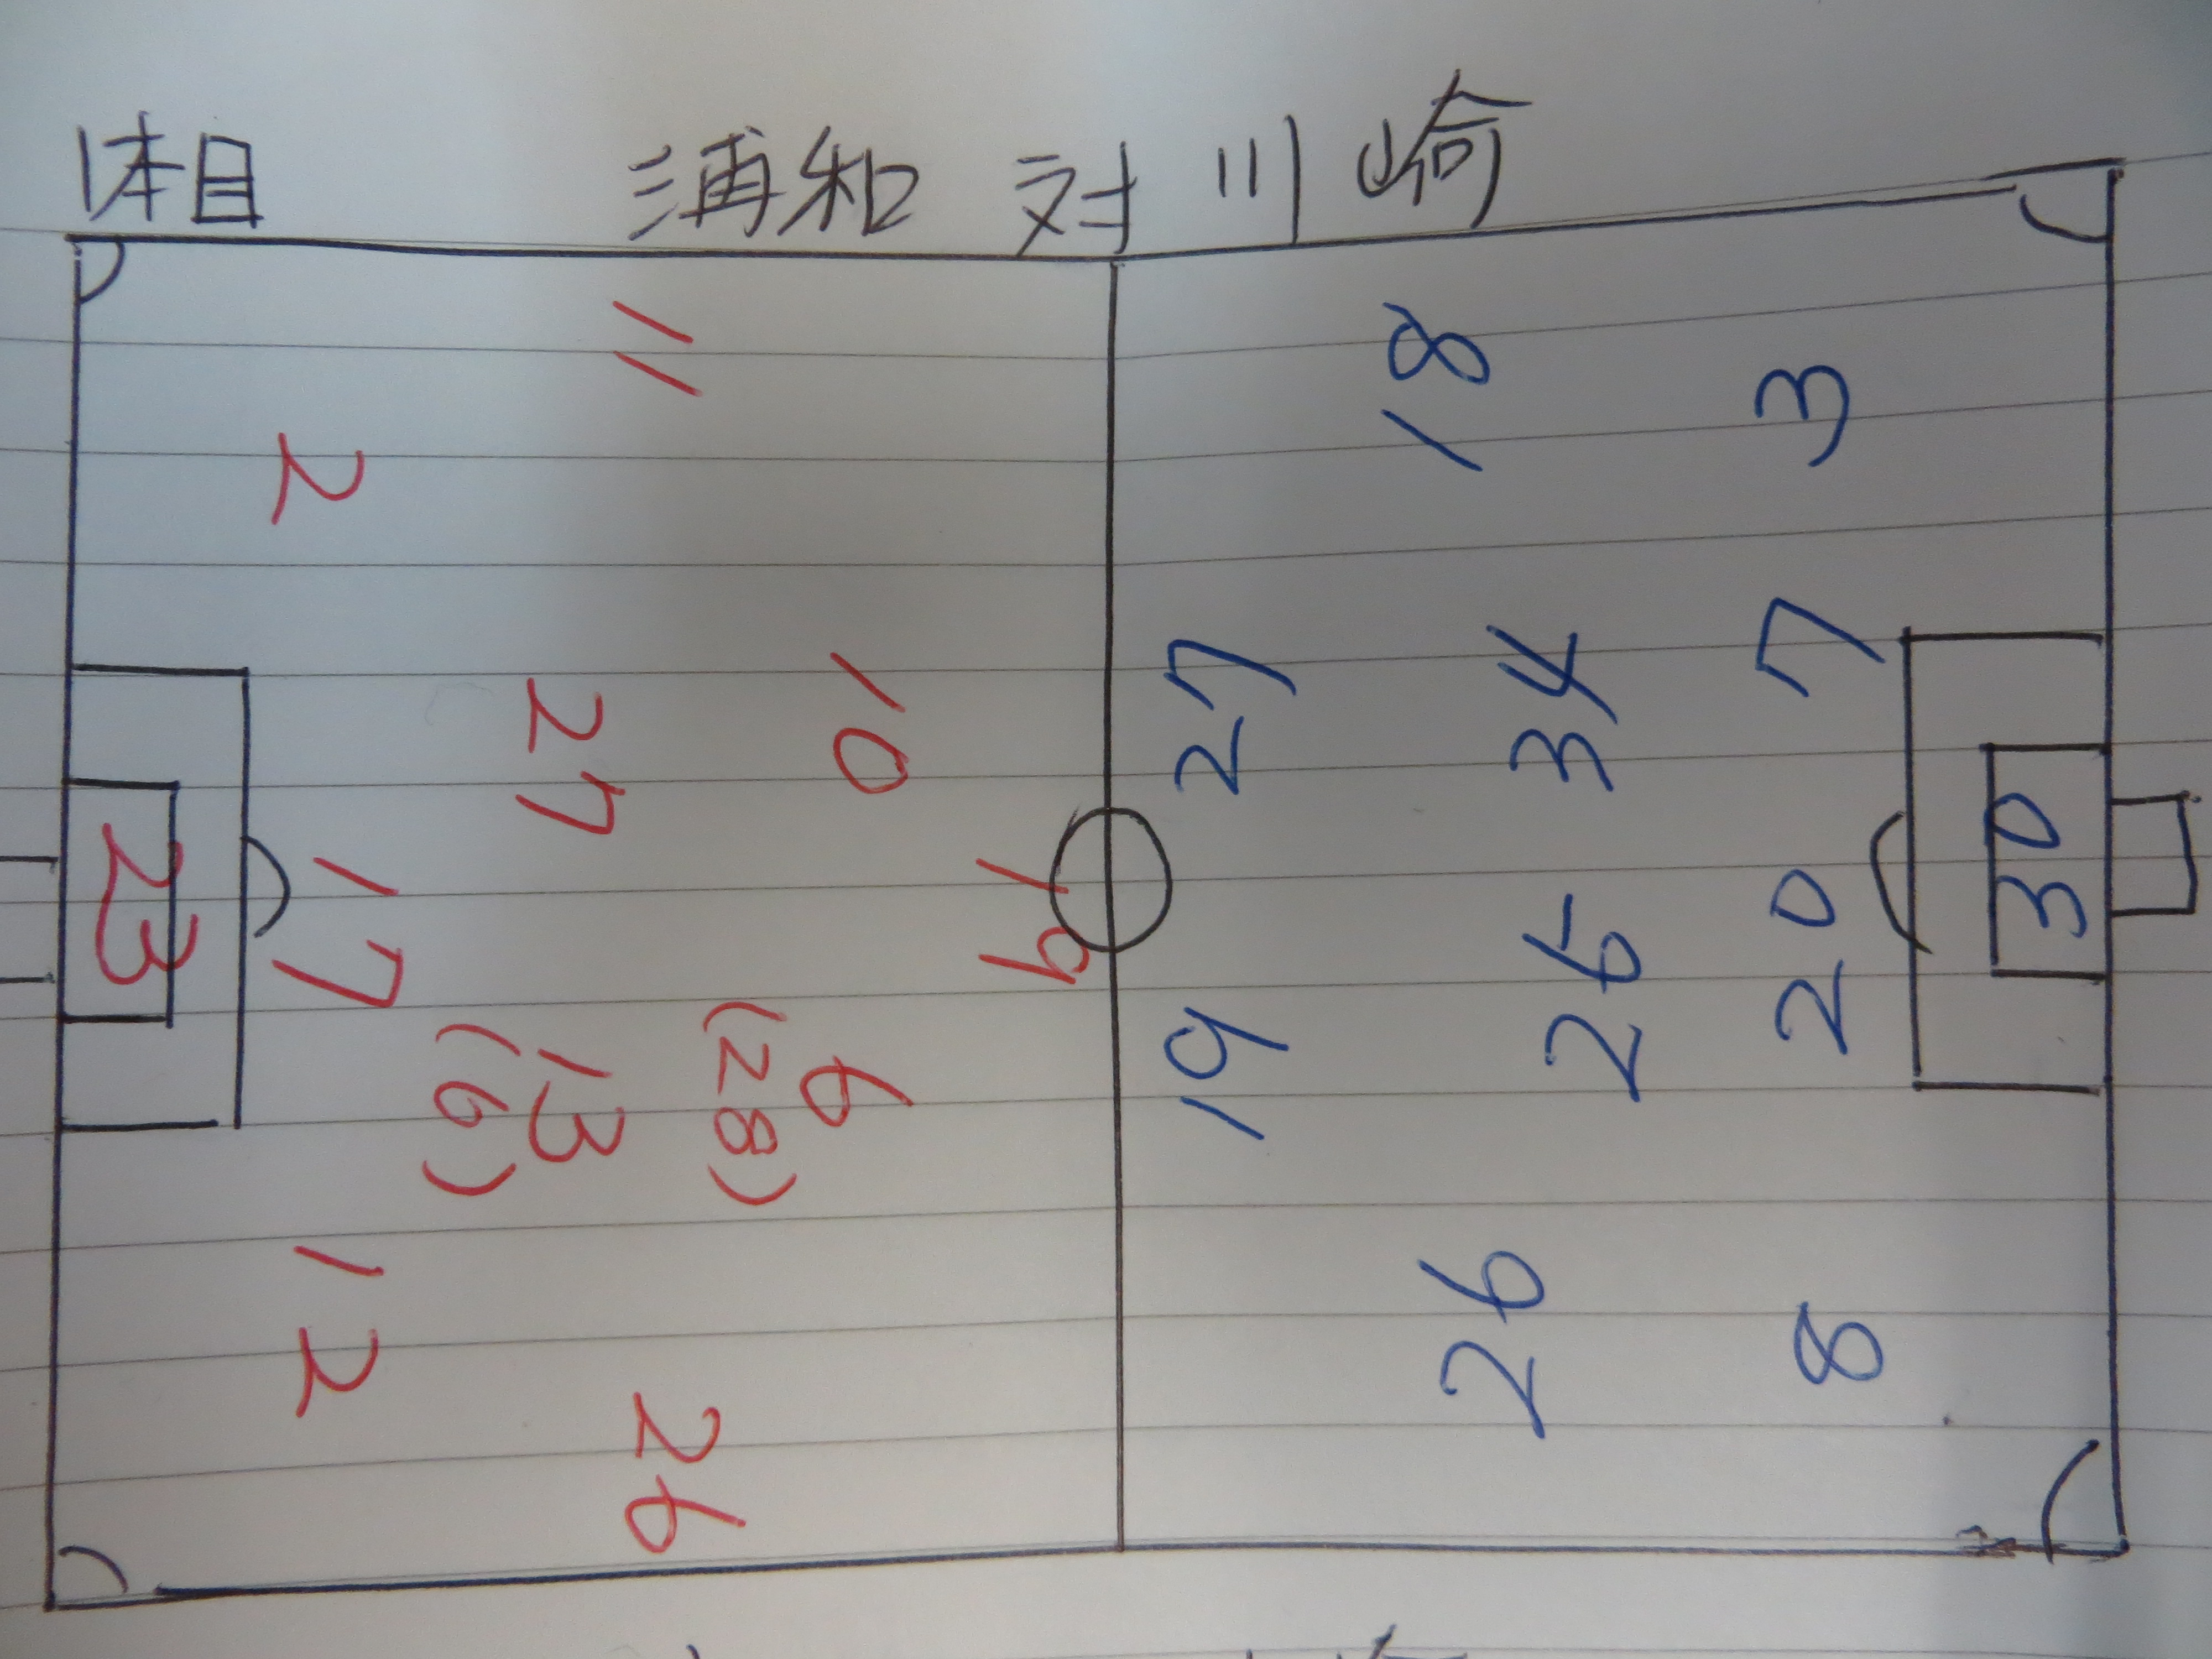 1本目 浦和 対 川崎
11
2
10
27
19
17
23
6
(28)
13
(6)
12
26
18
3
27
34
7
30
25
20
19
26
8